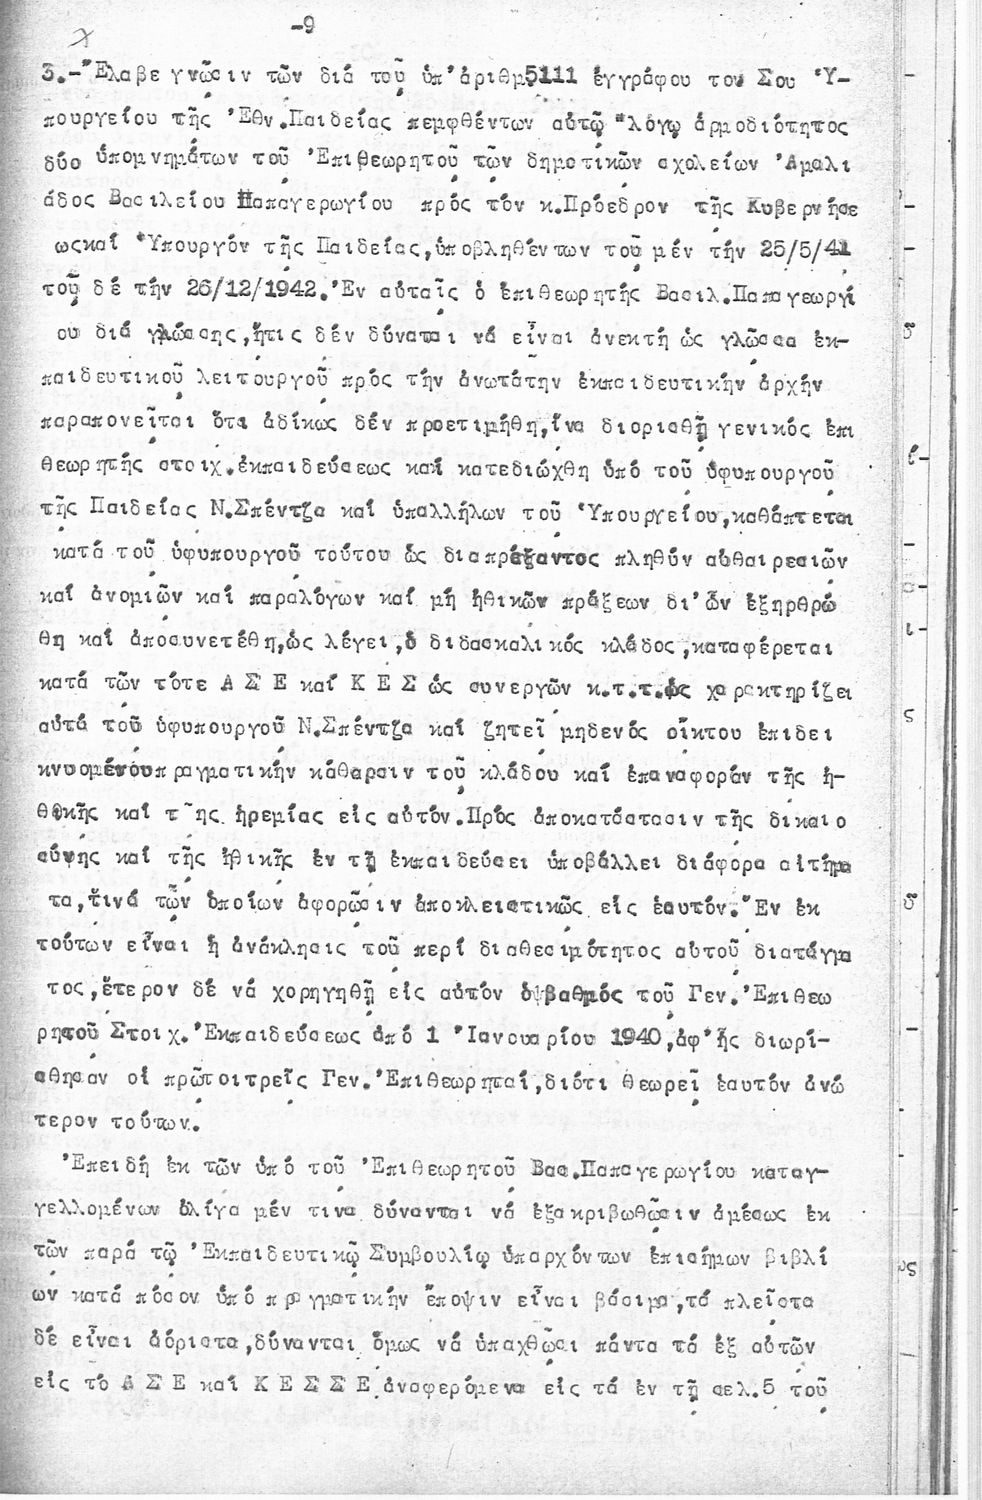 -9
3.-Ἔλαβε γνῶσιν τῶν διά τοῦ ὑπ'ἀριθμ5111 ἐγγράφου του Σου Ὑ-
πουργείου τῆς Ἐθν.Παιδείας πεμφθέντων αὐτῷ "λόγῳ ἁρμοδιότητος
δύο ὑπομνημάτων τοῦ Ἐπιθεωρητοῦ τῶν δημοτικῶν σχολείων Ἀμαλι
άδος Βασιλείου Παπαγερωγίου πρός τόν κ.Πρόεδρον τῆς Κυβερνήσε
ωςκαί Ὑπουργόν τῆς Παιδείας,ὑποβληθέντων τοῦ μέν τήν 25/5/41
τοῦ δέ τήν 26/12/1942.Ἐν αὐταῖς ὁ ἐπιθεωρητής Βασιλ.Παπαγεωργί
ου διά γλώσσης,ἥτις δέν δύναται νά εἶναι ἀνεκτή ὡς γλῶσσα ἐκ-
παιδευτικοῦ λειτουργοῦ πρός τήν ἀνωτάτην ἐκπαιδευτικήν ἀρχήν
παραπονεῖται ὅτι ἀδίκως δέν προετιμήθη,ἵνα διορισθῇ γενικός ἐπι
θεωρητής στοιχ.ἐκπαιδεύσεως καί κατεδιώχθη ὑπό τοῦ ὑφυπουργοῦ
τῆς Παιδείας Ν.Σπέντζα καί ὑπαλλήλων τοῦ Ὑπουργείου,καθάπτεται
κατά τοῦ ὑφυπουργοῦ τούτου ὡς διαπράξαντος πληθύν αὐθαιρεσιῶν
καί ἀνομιῶν καί παραλόγων καί μή ἠθικῶν πράξεων δι'ὧν ἐξηρθρώ
θη καί ἀποσυνετέθη,ὡς λέγει,ὁ διδασκαλικός κλάδος,καταφέρεται
κατά τῶν τότε Α Σ Ε καί Κ Ε Σ ὡς συνεργῶν κ.τ.τ.ὡς χαρακτηρίζει
αὐτά τοῦ ὑφυπουργοῦ Ν.Σπέντζα καί ζητεῖ μηδενός οἴκτου ἐπιδει
κνυομένουπραγματικήν κάθαρσιν τοῦ κλάδου καί ἐπαναφοράν τῆς ἠ-
θικῆς καί τ῀ης ἠρεμίας εἰς αὐτόν.Πρός ἀποκατάστασιν τῆς δικαιο
σύνης καί τῆς ἠθικῆς ἐν τῇ ἐκπαιδεύσει ὑποβάλλει διάφορα αἰτήμα
τα,τινά τῶν ὁποίων ἀφορῶσιν ἀποκλειστικῶς εἰς ἑαυτόν.Ἔν ἐκ
τούτων εἶναι ἡ ἀνάκλησις τοῦ περί διαθεσιμότητος αὐτοῦ διατάγμα
τος,ἕτερον δέ νά χορηγηθῇ εἰς αὐτόν ὁ βαθμός τοῦ Γεν.Ἐπιθεω
ρητοῦ Στοιχ.Ἐκπαιδεύσεως ἀπό 1 Ἰανουαρίου 1940,ἀφ'ἧς διωρί-
σθησαν οἱ πρῶτοιτρεῖς Γεν.Ἐπιθεωρηταί,διότι θεωρεῖ ἑαυτόν ἀνώ
τερον τούτων.
Ἐπειδή ἐκ τῶν ὑπό τοῦ Ἐπιθεωρητοῦ Βασ.Παπαγερωγίου καταγ-
γελλομένων ὀλίγα μέν τινα δύνανται νά ἐξακριβωθῶσιν ἀμέσως ἐκ
τῶν παρά τῷ Ἐκπαιδευτικῷ Συμβουλίῳ ὑπαρχόντων ἐπισήμων βιβλί
ων κατά πόσον ὑπό πραγματικήν ἔποψιν εἶναι βάσιμα,τά πλεῖστα
δέ εἶναι ἀόριστα,δύνανται ὅμως νά ὑπαχθῶσι πάντα τά ἐξ αὐτῶν
εἰς τό Α Σ Ε καί Κ Ε Σ Σ Ε ἀναφερόμενα εἰς τά ἐν τῇ σελ.5 τοῦ